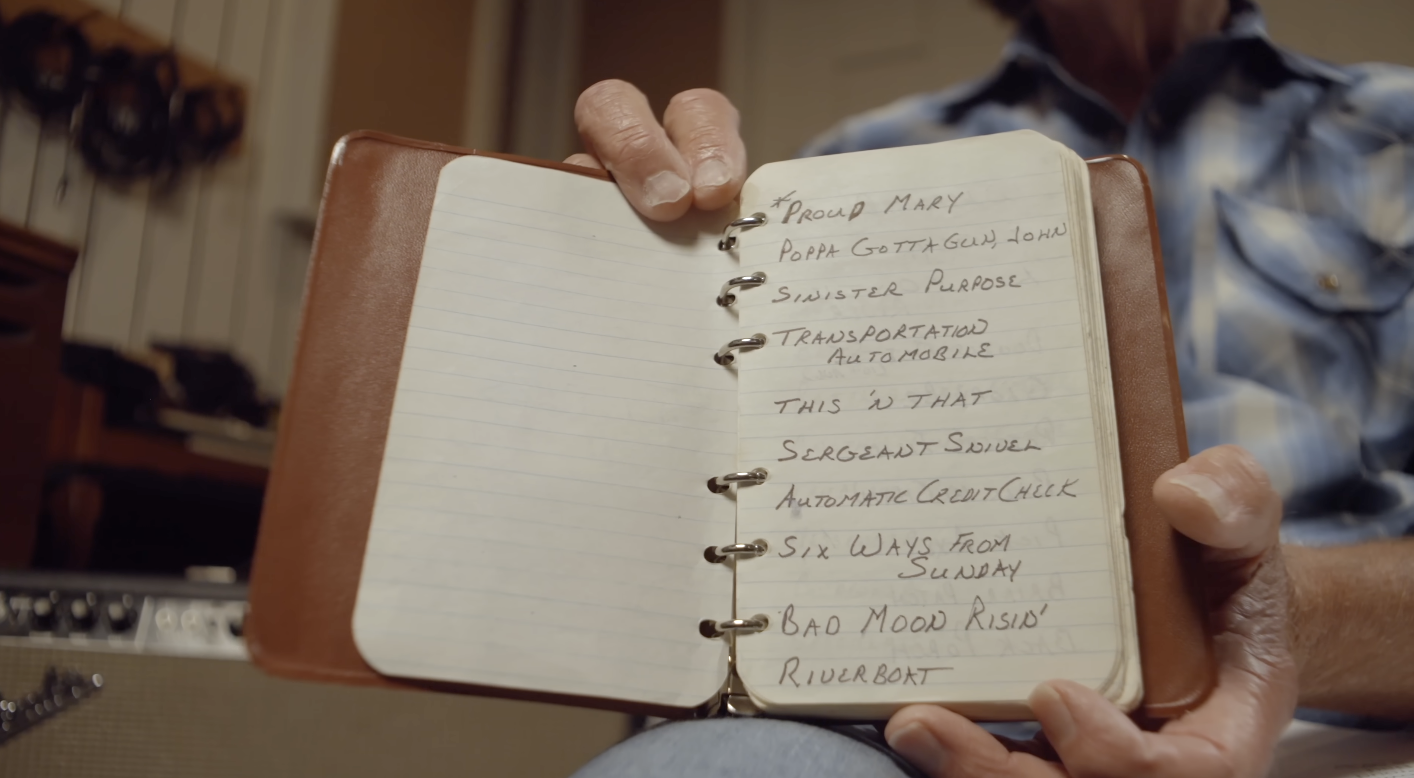 *PROUD MARY
POPPA GOTTA GUN, JOHN
SINISTER PURPOSE
TRANSPORTATION
AUTOMOBILE
THIS 'N THAT
SERGEANT SNIVEL
AUTOMATIC CREDIT CHECK
SIX WAYS FROM
SUNDAY
BAD MOON RISIN'
RIVERBOAT